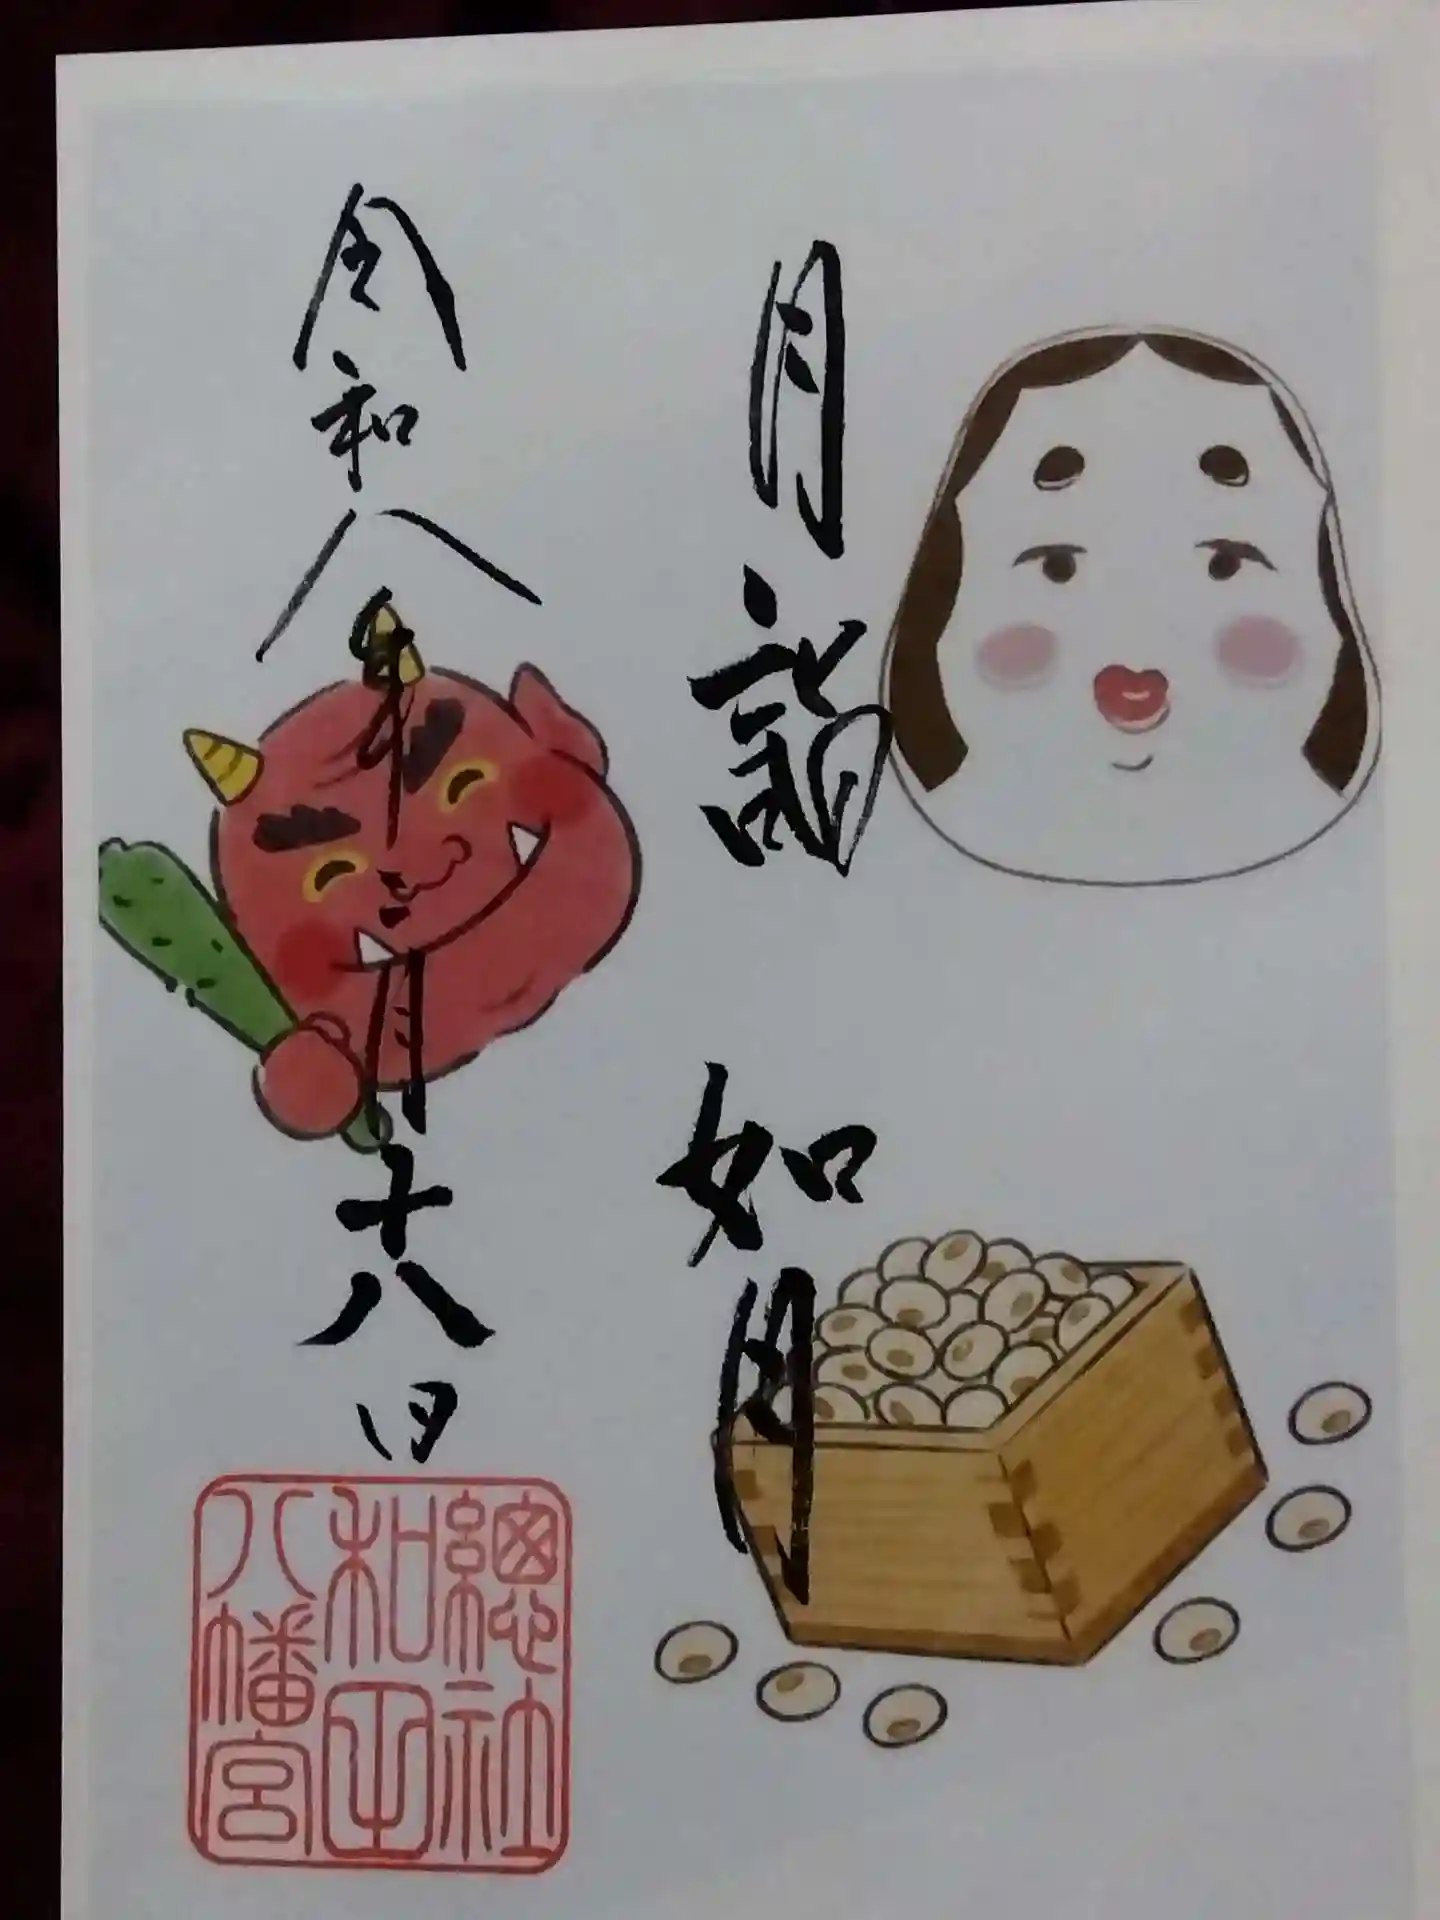 月詣 如月
令和八年二月十八日
總社
和田
八幡宮